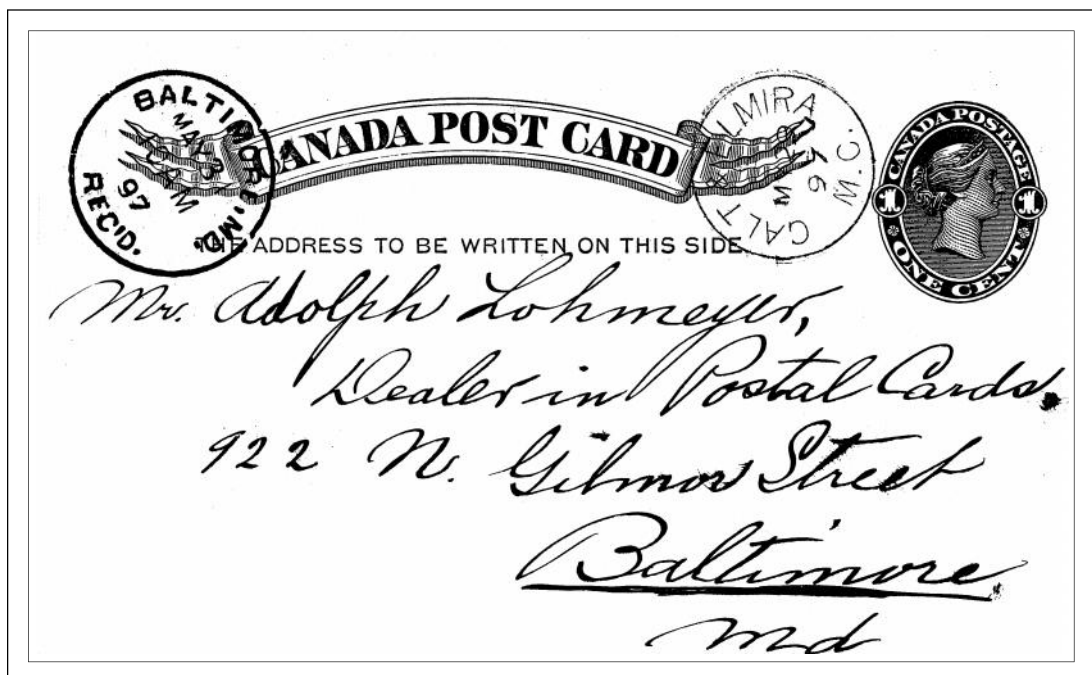 BALTIMORE, MD.
97
REC'D.
CANADA POST CARD
GALT & ELMIRA M.C.
CANADA POSTAGE
1 1
ONE CENT
THE ADDRESS TO BE WRITTEN ON THIS SIDE
Mr. Adolph Lohmeyer,
Dealer in Postal Cards.
922 N. Gilmor Street
Baltimore.
Md